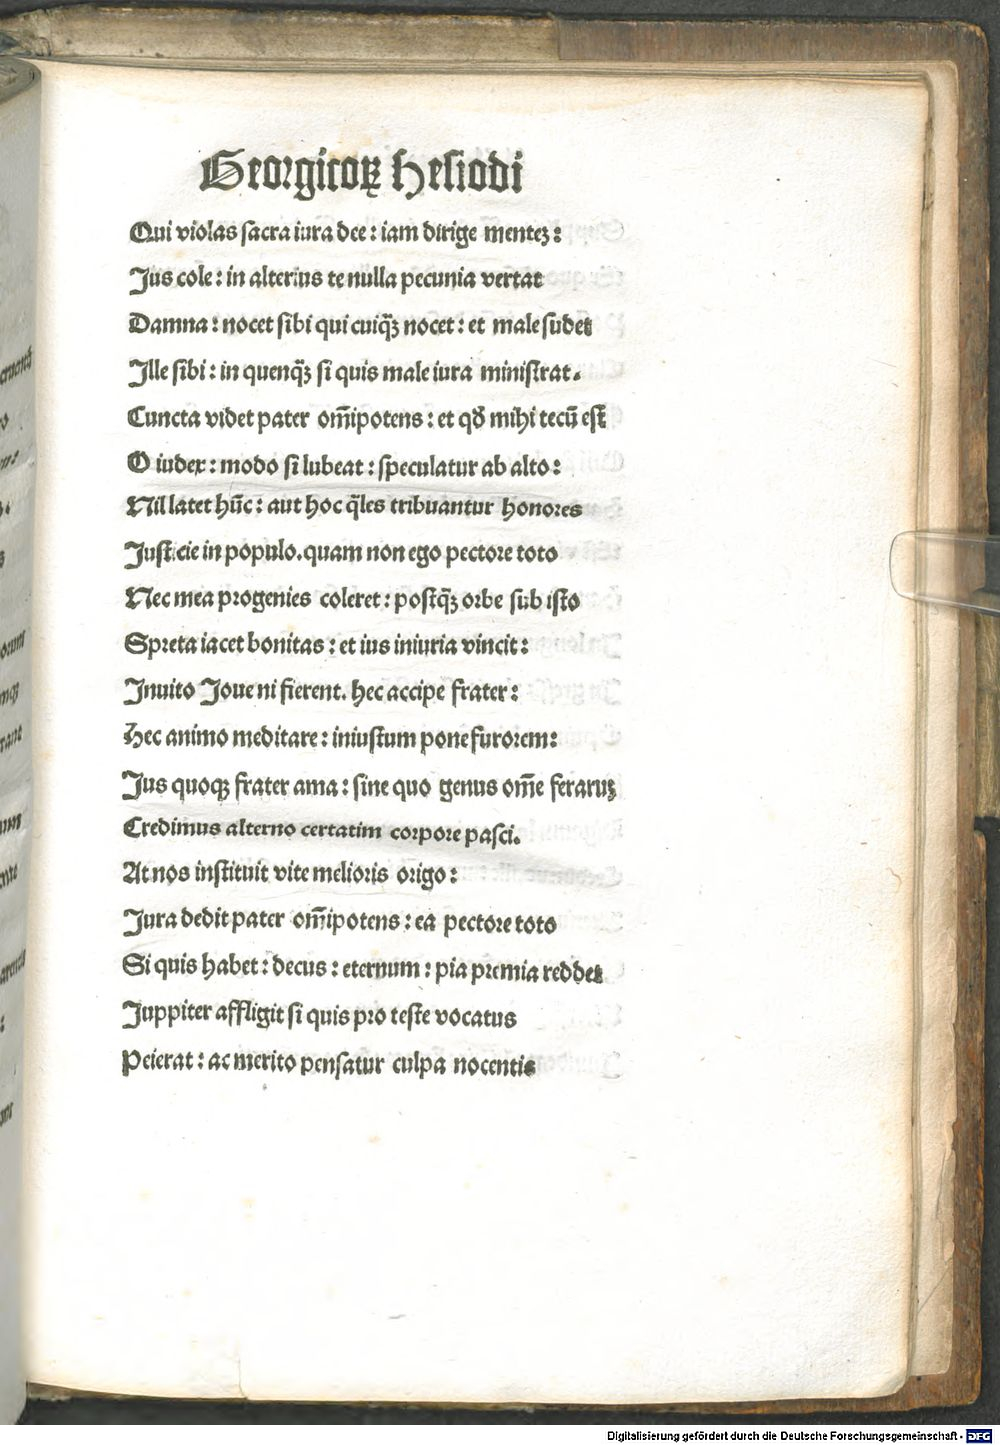 Georgicoꝝ Hesiodi
Qui violas sacra iura dee : iam dirige menteʒ :
Jus cole : in alterius te nulla pecunia vertat
Damna : nocet sibi qui cuiq̃ʒ nocet : et male sudet
Ille sibi : in quenq̃ʒ si quis male iura ministrat.
Cuncta videt pater om̃ipotens : et qđ mihi tecū est
O iudex : modo si lubeat : speculatur ab alto :
Nil latet hūc : aut hoc q̄les tribuantur honores
Justicie in populo. quam non ego pectore toto
Nec mea progenies coleret : postq̃ʒ orbe sub isto
Spreta iacet bonitas : et ius iniuria vincit :
Inuito Joue ni fierent. hec accipe frater :
Hec animo meditare : iniustum pone furorem :
Jus quoqʒ frater ama : sine quo genus om̄e feraruʒ
Credimus alterno certatim corpore pasci.
At nos instituit vite melioris origo :
Jura dedit pater om̃ipotens : ea pectore toto
Si quis habet : decus : eternum : pia premia reddet
Juppiter affligit si quis pro teste vocatus
Peierat : ac merito pensatur culpa nocentis
Digitalisierung gefördert durch die Deutsche Forschungsgemeinschaft - DFG